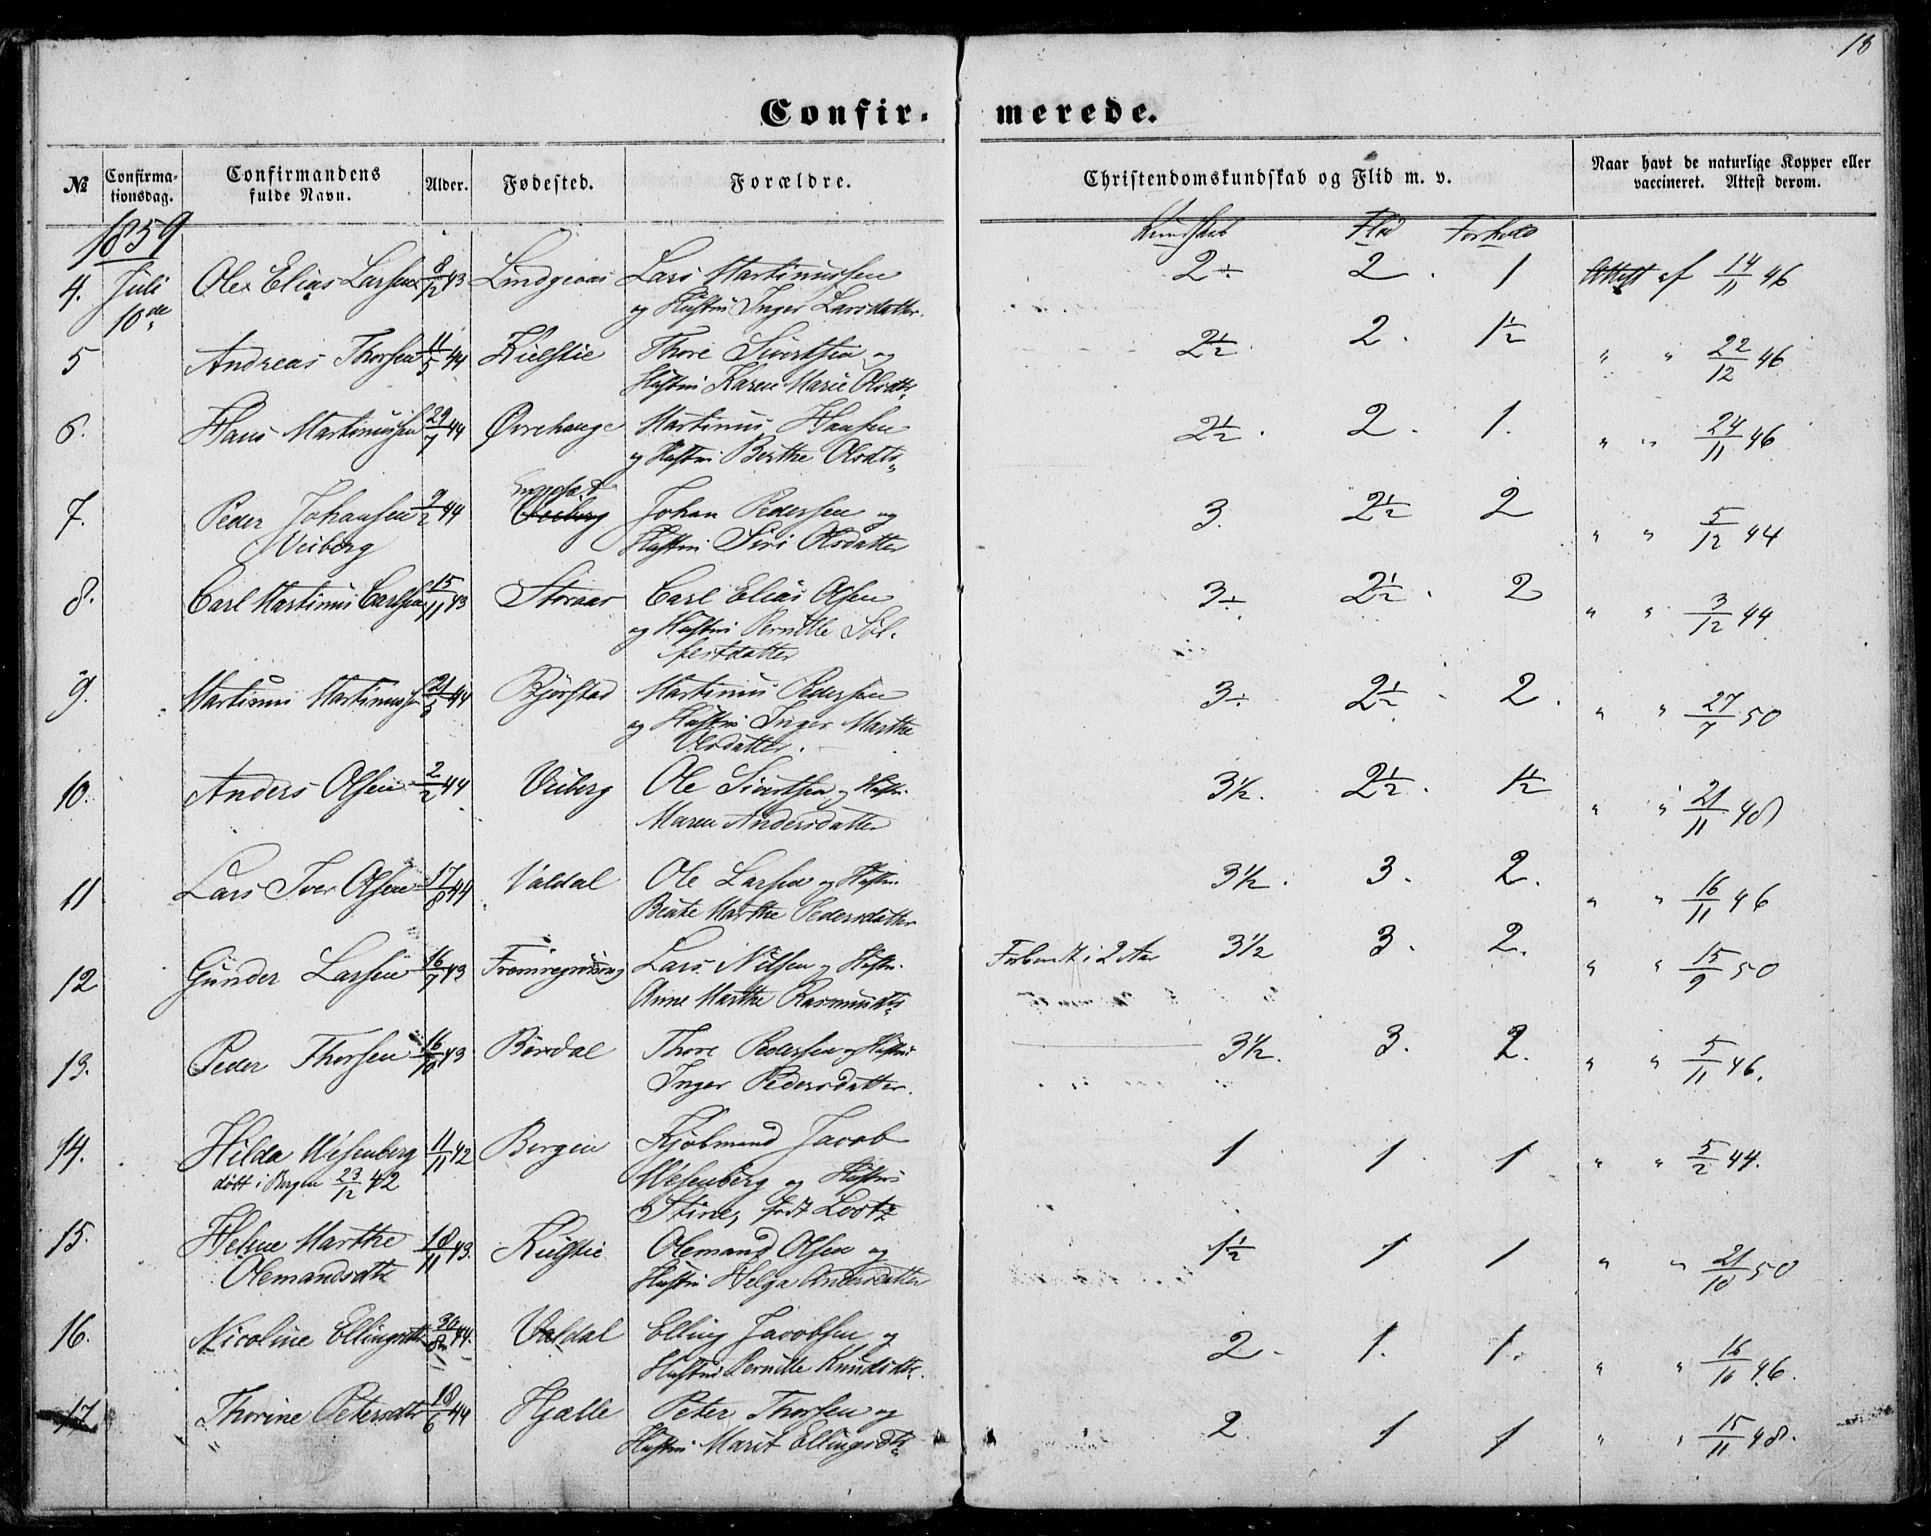 18
Confir- merede.
№ Confirma- Confirmandens Alder. Fødested. Forældre. Christendomskundskab og Flid m. v. Naar havt de naturlige Kopper eller
tionsdag. fulde Navn. vaccineret. Attest derom.
1859 Kundskab Flid Forhold
4. Juli Ole Elias Larsen 8/12 43 Lars Martinussen 2÷ 2. 1 Attest af 14/11 46
10de og Hustru Inger Larsdatter.
5 Andreas Thorsen 11/5 44 Kielstie Thore Sivertsen og 2½. 2. 1½ " " 22/12 46
Hustru Karen Marie Olsdtr
6. Hans Martinussen 29/7 44 Øvrehauge Martinus Hansen 2½. 2. 1. " " 24/11 46
og Hustru Berthe Olsdtr
7. Peder Johansen 9/2 44 Veiberg Johan Pedersen og 3. 2½ 2 " " 5/12 44
Veiberg Hustru Siri Olsdatter
8. Carl Martinus Carlsen 15/11 43 Storaas Carl Elias Olsen 3÷ 2½. 2 " " 3/12 44
og Hustru Pernille Sol-
festdatter
9. Martinus Martinussen 44 Bjørstad Martinus Pedersen 3÷ 2½. 2. " " 27/7 50
og Hustru Inger Marthe
Olsdatter.
10. Anders Olsen 2/2 44 Veiberg Ole Sivertsen og Hustru 3½. 2½. 1½ " " 21/11 48
Maren Andersdatter
11 Lars Iver Olsen 17/8 44 Valdal Ole Larsen og Hustru 3½. 3. 2. " " 16/11 46
Beate Marthe Pedersdatter
12 Gunder Larsen 16/7 43 Lars Nilsen og Hustru i 2 Aar 3½ 3. 2. " " 15/9 50
Anne Marthe Rasmusdtr
13. Peder Thorsen 16/10 43 Børdal Thore Pedersen og Hustru 3½. 3. 2. " " 5/11 46.
Inger Pedersdatter.
14. Hilda Wesenberg 11/11 42 Bergen Kjøbmand Jacob 1 1 1 " " 5/2 44.
døbt i Bergen 23/12 42 Wesenberg og Hustru
Stine, født Lootz
15. Helene Marthe 18/11 43. Kielstie Olemand Olsen og 1½ 1 1 " " 21/10 50
Olemandsdtr Hustru Helga Andersdatter
16. Nicoline Ellingsdtr 30/8 44. Valdal Elling Jacobsen og 2. 1. 1. " " 16/11 46.
Hustru Pernille Knudsdtr.
17 Thorine Petersdtr 18/6 44 Hjælle Peter Thorsen og 2 1 1 " " 15/11 48.
Hustru Marit Ellingsdtr